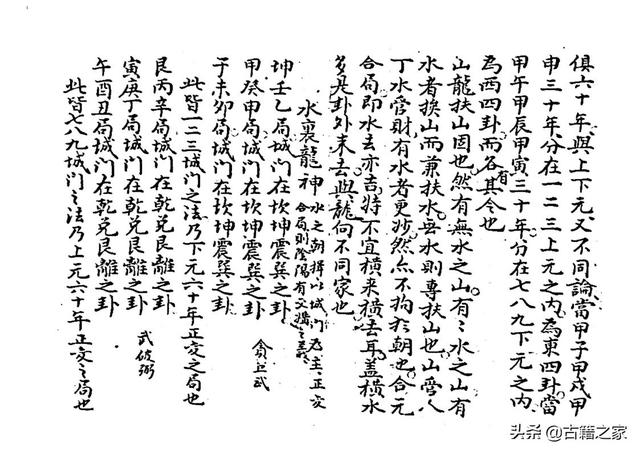 俱六十年、與上下元、又不同論、當甲子甲戌甲
申三十年、分在一二三上元之內、為東四卦當
甲午甲辰甲寅三十年、分在七八九下元之內、
為西四卦而各有其令也
山龍扶山固也、然有無水之山有、水之山有
水者挨山而兼扶水、無水則專扶山也、山管人
丁水管財、有水者更妙然亦不拘於朝也、合元
合局即水去亦吉、特不宜橫來橫去耳、蓋橫水
多是卦外來去與龍向不同家也
水裏龍神 水之朝揖以城門為主、正変
合局則陰陽有交媾之義
坤壬乙局城门在坎坤震巽之卦
甲癸申局城门在坎坤震巽之卦 貪巨武
子未卯局城门在坎坤震巽之卦
此皆一二三城门之法乃下元六十年正変之局也
艮丙辛局城门在乾兌艮離之卦
寅庚丁局城门在乾兌艮離之卦 武破弼
午酉丑局城门在乾兌艮離之卦
此皆七八九城门之法乃上元六十年正変之局也
头条 @古籍之家